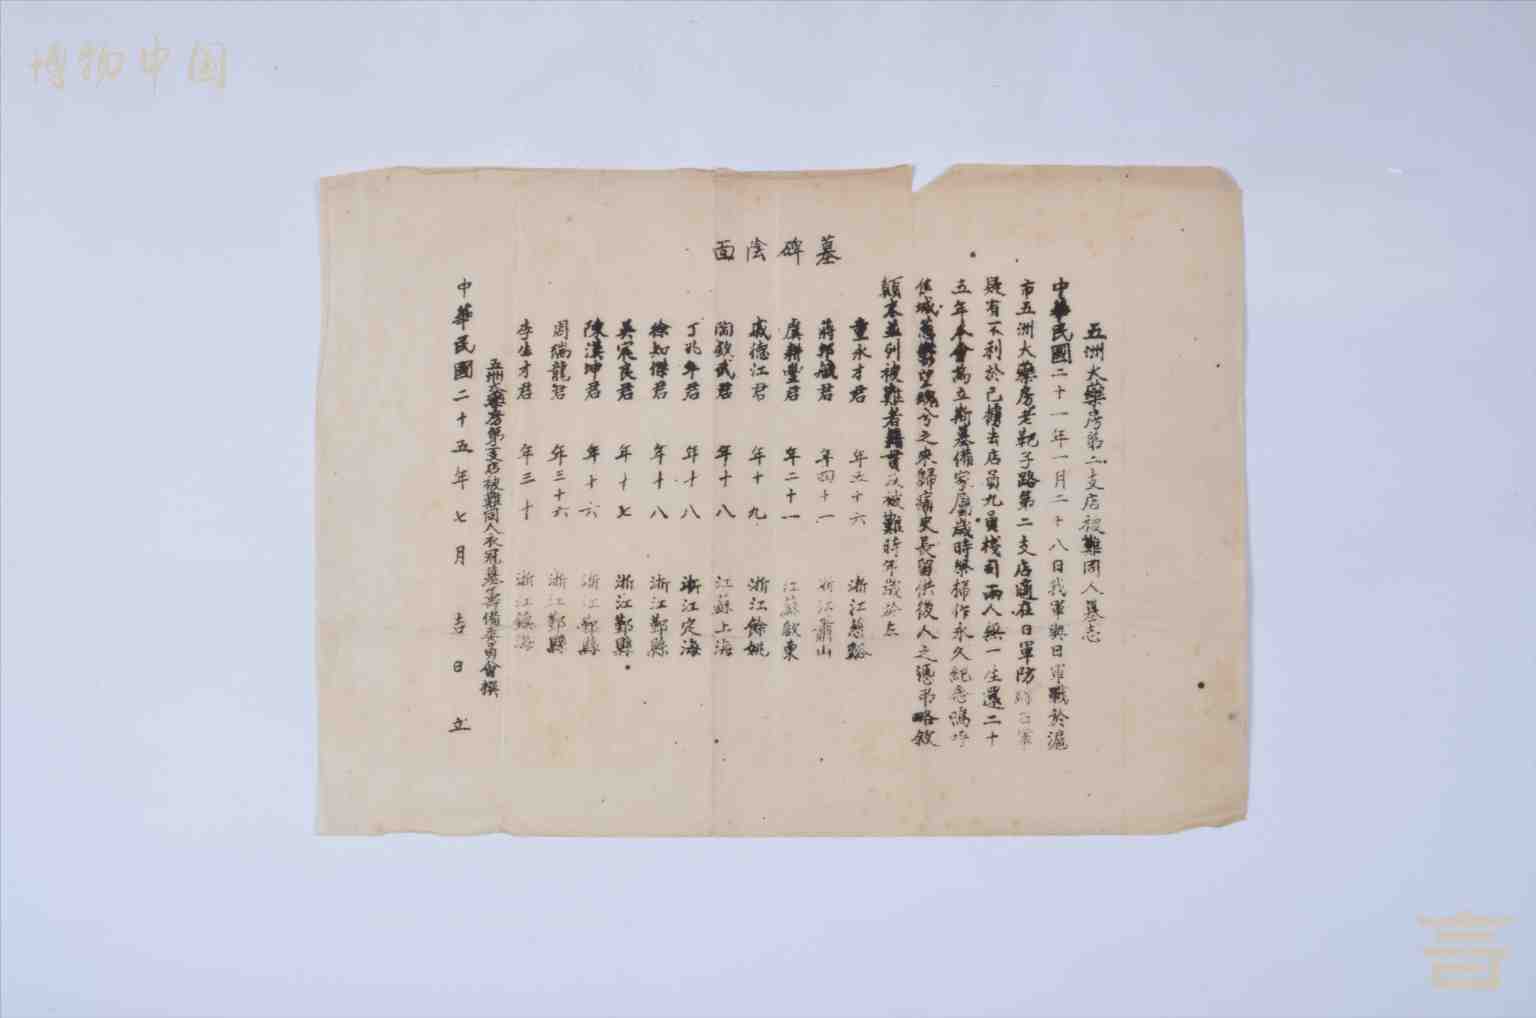 博物中国
墓碑陰面
五洲大藥房第二支店被難同人墓志
中華民國二十一年一月二十八日我軍與日軍戰於滬
市五洲大藥房老靶子路第二支店適在日軍防
疑有不利於己擄去店員九員棧司兩人無一生還二十
五年本會為立斯墓備家屬歲時祭掃作永久紀念嗚呼
佳城蔥鬱望魂兮之來歸痛史長留供後人之憑弔略敘
顛末並列被難者籍貫及被難時年歲於左
童永才君 年五十六 浙江慈谿
蔣邦 君 年四十一 浙江蕭山
虞耕豐君 年二十一 江蘇啟東
戚德江君 年十九 浙江餘姚
陶 武君 年十八 江蘇上海
丁兆年君 年十八 浙江定海
徐知傑君 年十八 浙江鄞縣
吳宸良君 年十七 浙江鄞縣
陳漢坤君 年十六 浙江鄞縣
周瑞龍君 年三十六 浙江鄞縣
李生才君 年三十 浙江鎮海
五洲大藥房第二支店被難同人衣冠墓籌備委員會撰
中華民國二十五年七月 吉日 立
言